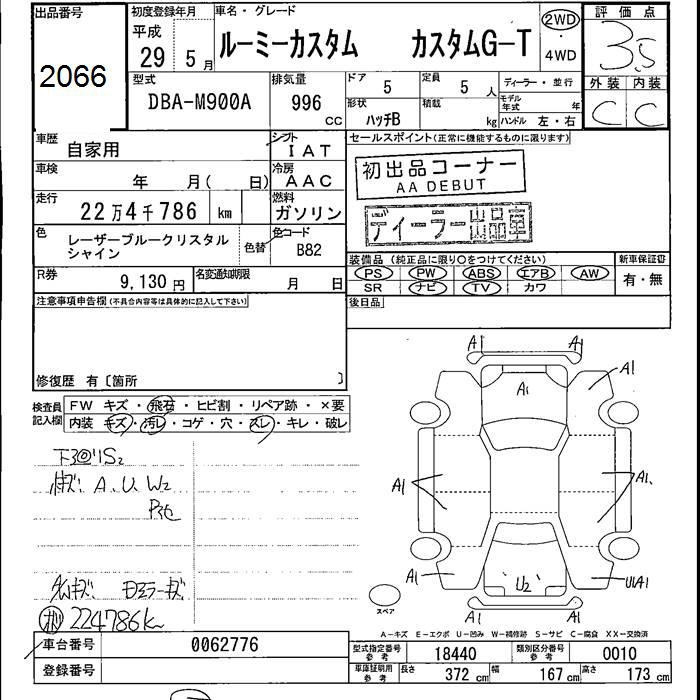 出品番号
2066
初度登録年月
平成
29 5月
車名・グレード
ルーミーカスタム カスタムG-T
2WD
・
4WD
評価点
3.5
外装 内装
C C
型式
DBA-M900A
排気量
996
CC
ドア
5
定員
5人
形状
ハッチB
積載
kg
ディーラー・並行
モデル年式 年
ハンドル 左・右
車歴
自家用
シフト
IAT
車検
年 月( 日)
冷房
AAC
走行
22万4千786 km
燃料
ガソリン
色
レーザーブルークリスタル
シャイン
色替
色コード
B82
R券
9,130円
名変通知期限
月 日
セールスポイント(正常に機能するものに限ります)
初出品コーナー
AA DEBUT
ディーラー出品車
装備品 (純正品に限り○をつけてください)
PS PW ABS エアB AW
SR ナビ TV カワ
新車保証書
有・無
後日品
注意事項申告欄(不具合内容等は具体的に記入して下さい)
修復歴 有〔箇所 〕
検査員
記入欄
FW キズ・飛石・ヒビ割・リペア跡・×要
内装 キズ・汚レ・コゲ・穴・スレ・キレ・破レ
A.U.W2
224786k
A1 A1
A1
A1
A1
A1
A1
U2
U1A1
A1 A1
スペア
A-キズ E-エクボ U-凹み W-補修跡 S-サビ C-腐食 XX-交換済
車台番号
0062776
登録番号
型式指定番号
参考
18440
類別区分番号
参考
0010
車庫証明用
参考
長さ 372 cm
幅 167 cm
高さ 173 cm